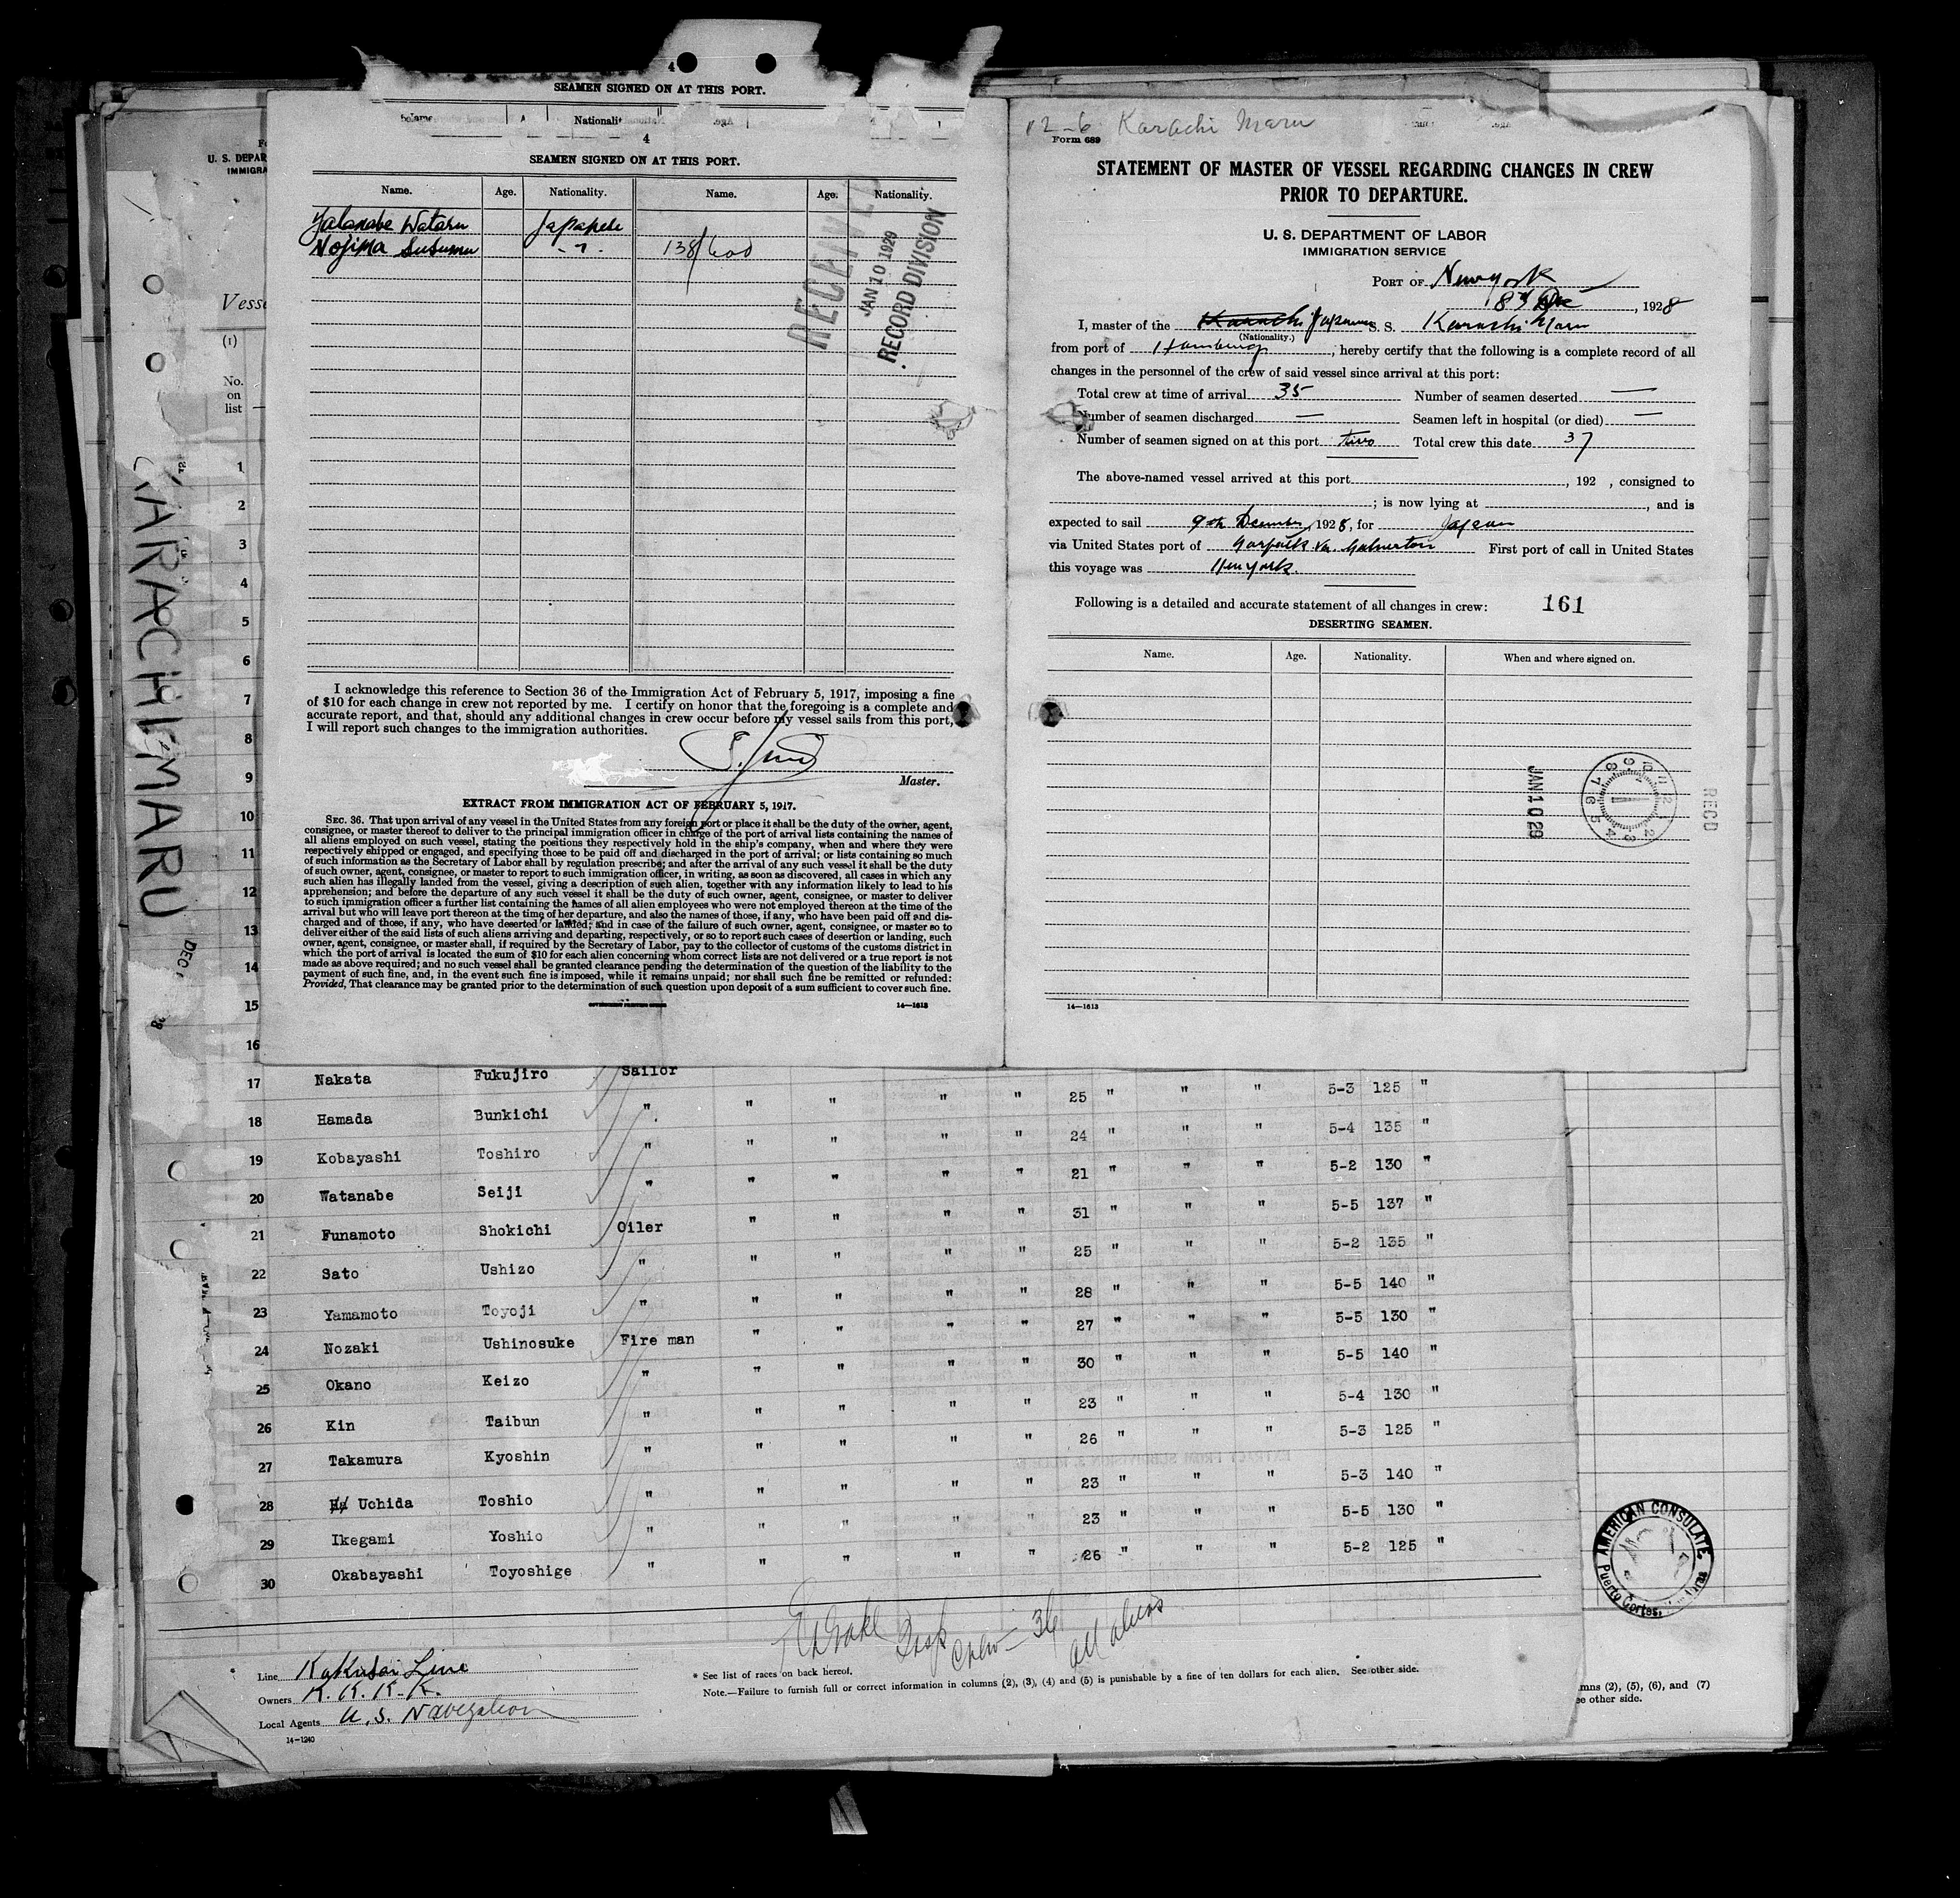 4
SEAMEN SIGNED ON AT THIS PORT.
4
SEAMEN SIGNED ON AT THIS PORT.
Name. Age. Nationality. Name. Age. Nationality.
Wataru Japanese
Nojima Susumu - " - 138/600
RECEIVED
JAN 10 1929
RECORD DIVISION
I acknowledge this reference to Section 36 of the Immigration Act of February 5, 1917, imposing a fine
of $10 for each change in crew not reported by me. I certify on honor that the foregoing is a complete and
accurate report, and that, should any additional changes in crew occur before my vessel sails from this port,
I will report such changes to the immigration authorities.
Master.
EXTRACT FROM IMMIGRATION ACT OF FEBRUARY 5, 1917.
SEC. 36. That upon arrival of any vessel in the United States from any foreign port or place it shall be the duty of the owner, agent,
consignee, or master thereof to deliver to the principal immigration officer in charge of the port of arrival lists containing the names of
all aliens employed on such vessel, stating the positions they respectively hold in the ship's company, when and where they were
respectively shipped or engaged, and specifying those to be paid off and discharged in the port of arrival; or lists containing so much
of such information as the Secretary of Labor shall by regulation prescribe; and after the arrival of any such vessel it shall be the duty
of such owner, agent, consignee, or master to report to such immigration officer, in writing, as soon as discovered, all cases in which any
such alien has illegally landed from the vessel, giving a description of such alien, together with any information likely to lead to his
apprehension; and before the departure of any such vessel it shall be the duty of such owner, agent, consignee, or master to deliver
to such immigration officer a further list containing the names of all alien employees who were not employed thereon at the time of the
arrival but who will leave port thereon at the time of her departure, and also the names of those, if any, who have been paid off and dis-
charged and of those, if any, who have deserted or landed; and in case of the failure of such owner, agent, consignee, or master so to
deliver either of the said lists of such aliens arriving and departing, respectively, or so to report such cases of desertion or landing, such
owner, agent, consignee, or master shall, if required by the Secretary of Labor, pay to the collector of customs of the customs district in
which the port of arrival is located the sum of $10 for each alien concerning whom correct lists are not delivered or a true report is not
made as above required; and no such vessel shall be granted clearance pending the determination of the question of the liability to the
payment of such fine, and, in the event such fine is imposed, while it remains unpaid; nor shall such fine be remitted or refunded:
Provided, That clearance may be granted prior to the determination of such question upon deposit of a sum sufficient to cover such fine.
14—1613
12-6 Karachi Maru
Form 689
STATEMENT OF MASTER OF VESSEL REGARDING CHANGES IN CREW
PRIOR TO DEPARTURE.
U. S. DEPARTMENT OF LABOR
IMMIGRATION SERVICE
PORT OF New York
8th Dec, 1928
I, master of the Karachi Japanese S. S. Karachi Maru
(Nationality.)
from port of Hamburg, hereby certify that the following is a complete record of all
changes in the personnel of the crew of said vessel since arrival at this port:
Total crew at time of arrival 35 Number of seamen deserted —
Number of seamen discharged — Seamen left in hospital (or died) —
Number of seamen signed on at this port two Total crew this date 37
The above-named vessel arrived at this port , 192 , consigned to
; is now lying at , and is
expected to sail 9th December, 1928, for Japan
via United States port of Norfolk via Galverton First port of call in United States
this voyage was New York.
Following is a detailed and accurate statement of all changes in crew: 161
DESERTING SEAMEN.
Name. Age. Nationality. When and where signed on.
JAN 10 29
REC'D
14—1613
U. S. DEPAR
IMMIGRA
Vesse
(1)
No.
on
list
KARACHI MARU
DEC
1
2
3
4
5
6
7
8
9
10
11
12
13
14
15
16
17 Nakata Fukujiro Sailor " " " " 25 " " " 5-3 125 "
18 Hamada Bunkichi " " " " " 24 " " " 5-4 135 "
19 Kobayashi Toshiro " " " " " 21 " " " 5-2 130 "
20 Watanabe Seiji " " " " " 31 " " " 5-5 137 "
21 Funamoto Shokichi Oiler " " " " 25 " " " 5-2 135 "
22 Sato Ushizo " " " " " 28 " " " 5-5 140 "
23 Yamamoto Toyoji " " " " " 27 " " " 5-5 130 "
24 Nozaki Ushinosuke Fire man " " " " 30 " " " 5-5 140 "
25 Okano Keizo " " " " " 23 " " " 5-4 130 "
26 Kin Taibun " " " " " 26 " " " 5-3 125 "
27 Takamura Kyoshin " " " " " 23 " " " 5-3 140 "
28 Uchida Toshio " " " " " 23 " " " 5-5 130 "
29 Ikegami Yoshio " " " " " 26 " " " 5-2 125 "
30 Okabayashi Toyoshige "
Insp Crew - 36
all aliens
Line Kokusai Line
Owners K. K. K. K.
Local Agents U. S. Navigation
14-1240
* See list of races on back hereof.
Note.—Failure to furnish full or correct information in columns (2), (3), (4) and (5) is punishable by a fine of ten dollars for each alien. See other side.
mns (2), (5), (6), and (7)
ee other side.
AMERICAN CONSULATE,
Puerto Cortes,